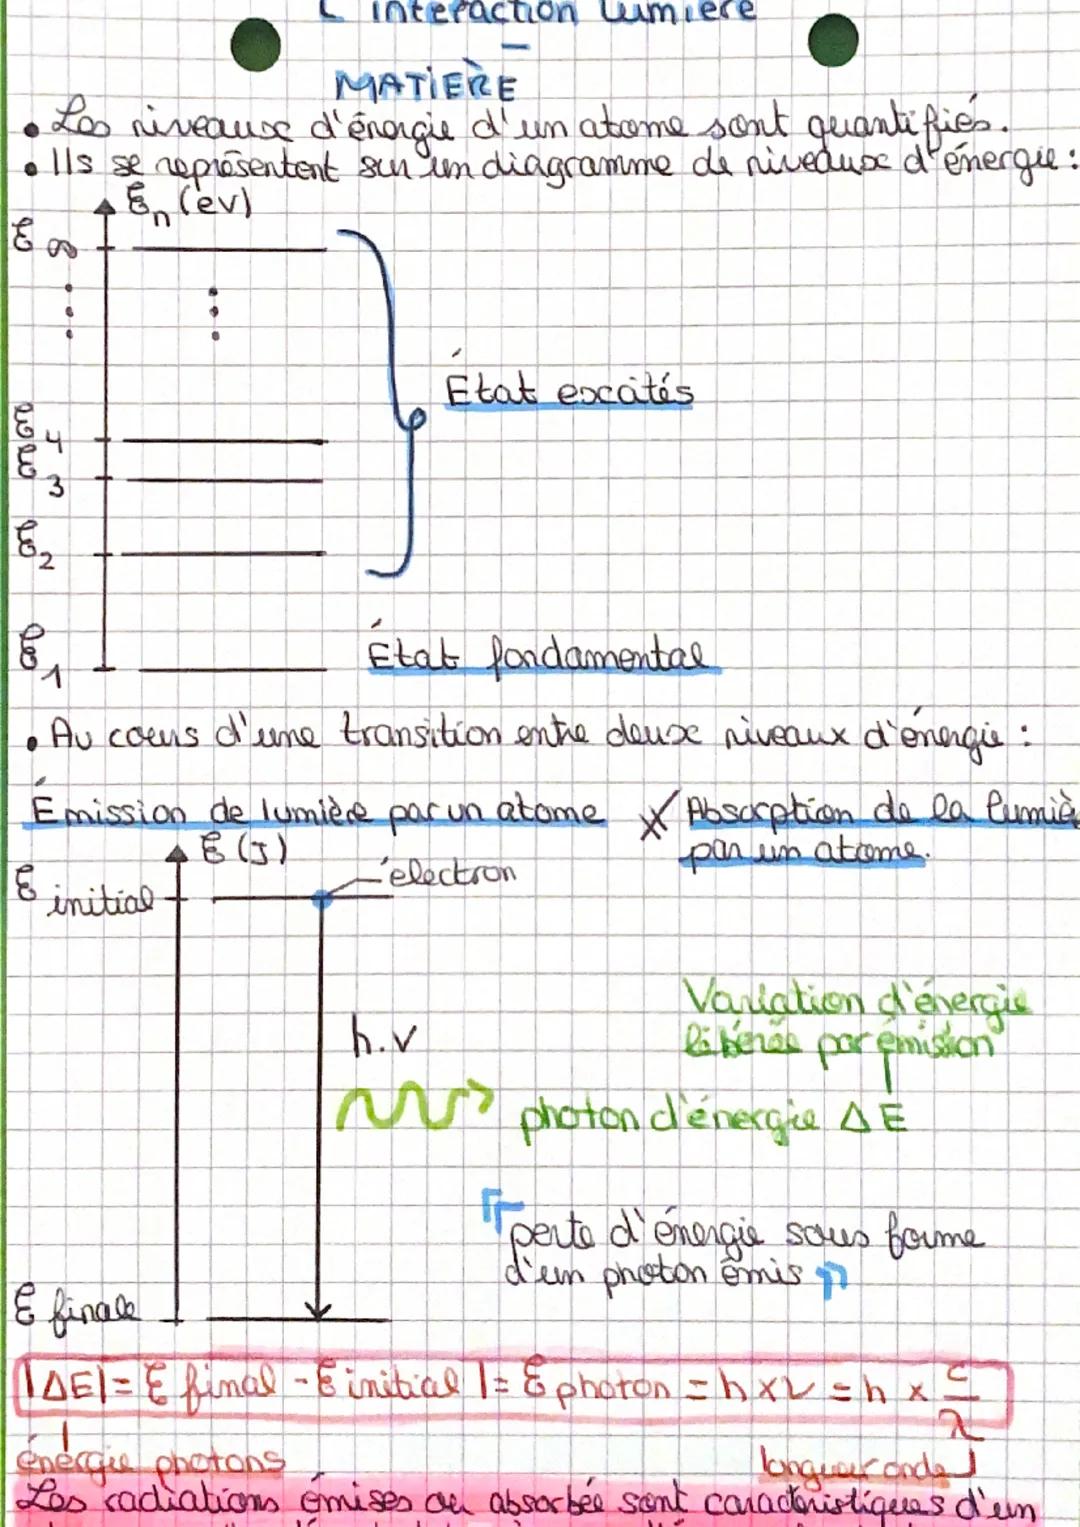 L'interaction lumière
-
MATIÈRE
• Les niveaux d'énergie d'un atome sont quantifiés.
• Ils se représentent sur un diagramme de niveaux d'énergie :
E n (ev)
E ∞
E 4
E 3
E 2
E 1
État excités
État fondamental
• Au cours d'une transition entre deux niveaux d'énergie :
Émission de lumière par un atome
Absorption de la lumiè
par un atome.
E (J)
électron
E initial
Variation d'énergie
libérée par émission
h.ν
photon d'énergie ΔE
perte d'énergie sous forme
d'un photon émis
E finale
|ΔE| = E final - E initial | = E photon = h x ν = h x c/λ
énergie photons
longueur onde
Les radiations émises ou absorbée sont caractéristiques d'un